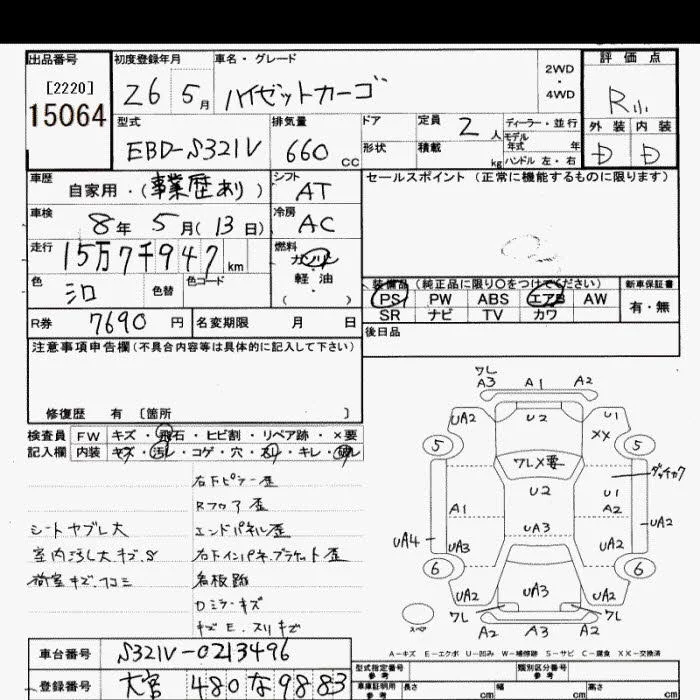 出品番号
[2220]
15064
初度登録年月
26 5 月
車名・グレード
ハイゼットカーゴ
2WD
・
4WD
評価点
R
外装 内装
D D
型式
EBD-S321V
排気量
660 cc
ドア
形状
定員 2 人
積載 kg
ディーラー・並行
モデル
年式 年
ハンドル 左・右
車歴
自家用・(事業歴あり)
シフト
AT
車検
8年 5月(13日)
冷房
AC
走行
15万7千947 km
燃料
ガソリン
・
軽油
( )
色
シロ
色替
色コード
R券 7690 円
名変期限 月 日
セールスポイント (正常に機能するものに限ります)
装備品(純正品に限り○をつけてください)
PS PW ABS エアB AW
SR ナビ TV カワ
新車保証書
有・無
後日品
注意事項申告欄(不具合内容等は具体的に記入して下さい)
修復歴 有 [箇所 ]
検査員
記入欄
FW キズ・飛石・ヒビ割・リペア跡・×要
内装 キズ・汚レ・コゲ・穴・スレ・キレ・破レ
右Fピラー歪
Rフロア歪
シートヤブレ大
エンドパネル歪
室内汚し大キズ.S
右Fインパネ.ブラケット歪
荷室キズ.凹ミ
名板跡
Dミラーキズ
キズE.スリキズ
ワレ
A3 A1 A2
UA2 U2 U1
XX
5 5
ワレX要
ダッチカク
U2
U1
A1 A2
UA3
UA2
UA4
UA3 UA2
6 6
UA2 UA3 UA2
ワレ ワレ
スペア
A2 A3 A2
A－キズ E－エクボ U－凹み W－補修跡 S－サビ C－腐食 XX－交換済
車台番号 S321V-0213496
登録番号 大宮 480 な 9883
型式指定番号
参考
類別区分番号
参考
車庫証明用
参考
長さ cm
幅 cm
高さ cm